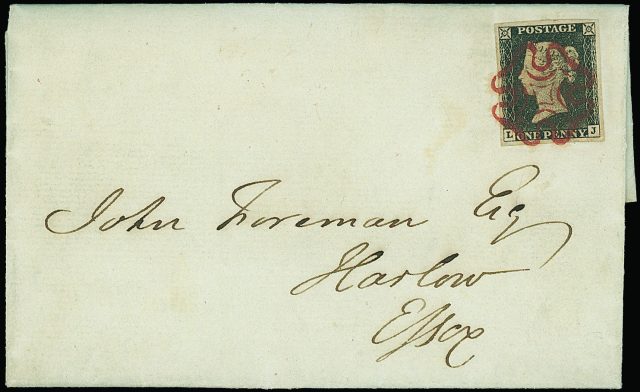 POSTAGE
L ONE PENNY J
John Foreman Esq
Harlow
Essex